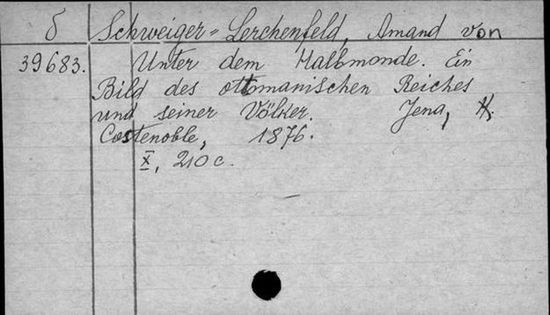 δ Schweiger-Lerchenfeld, Amand von
39683. Unter dem Halbmonde. Ein
Bild des ottomanischen Reiches
und seiner Völker. Jena, H.
Costenoble, 1876.
X, 210 c.